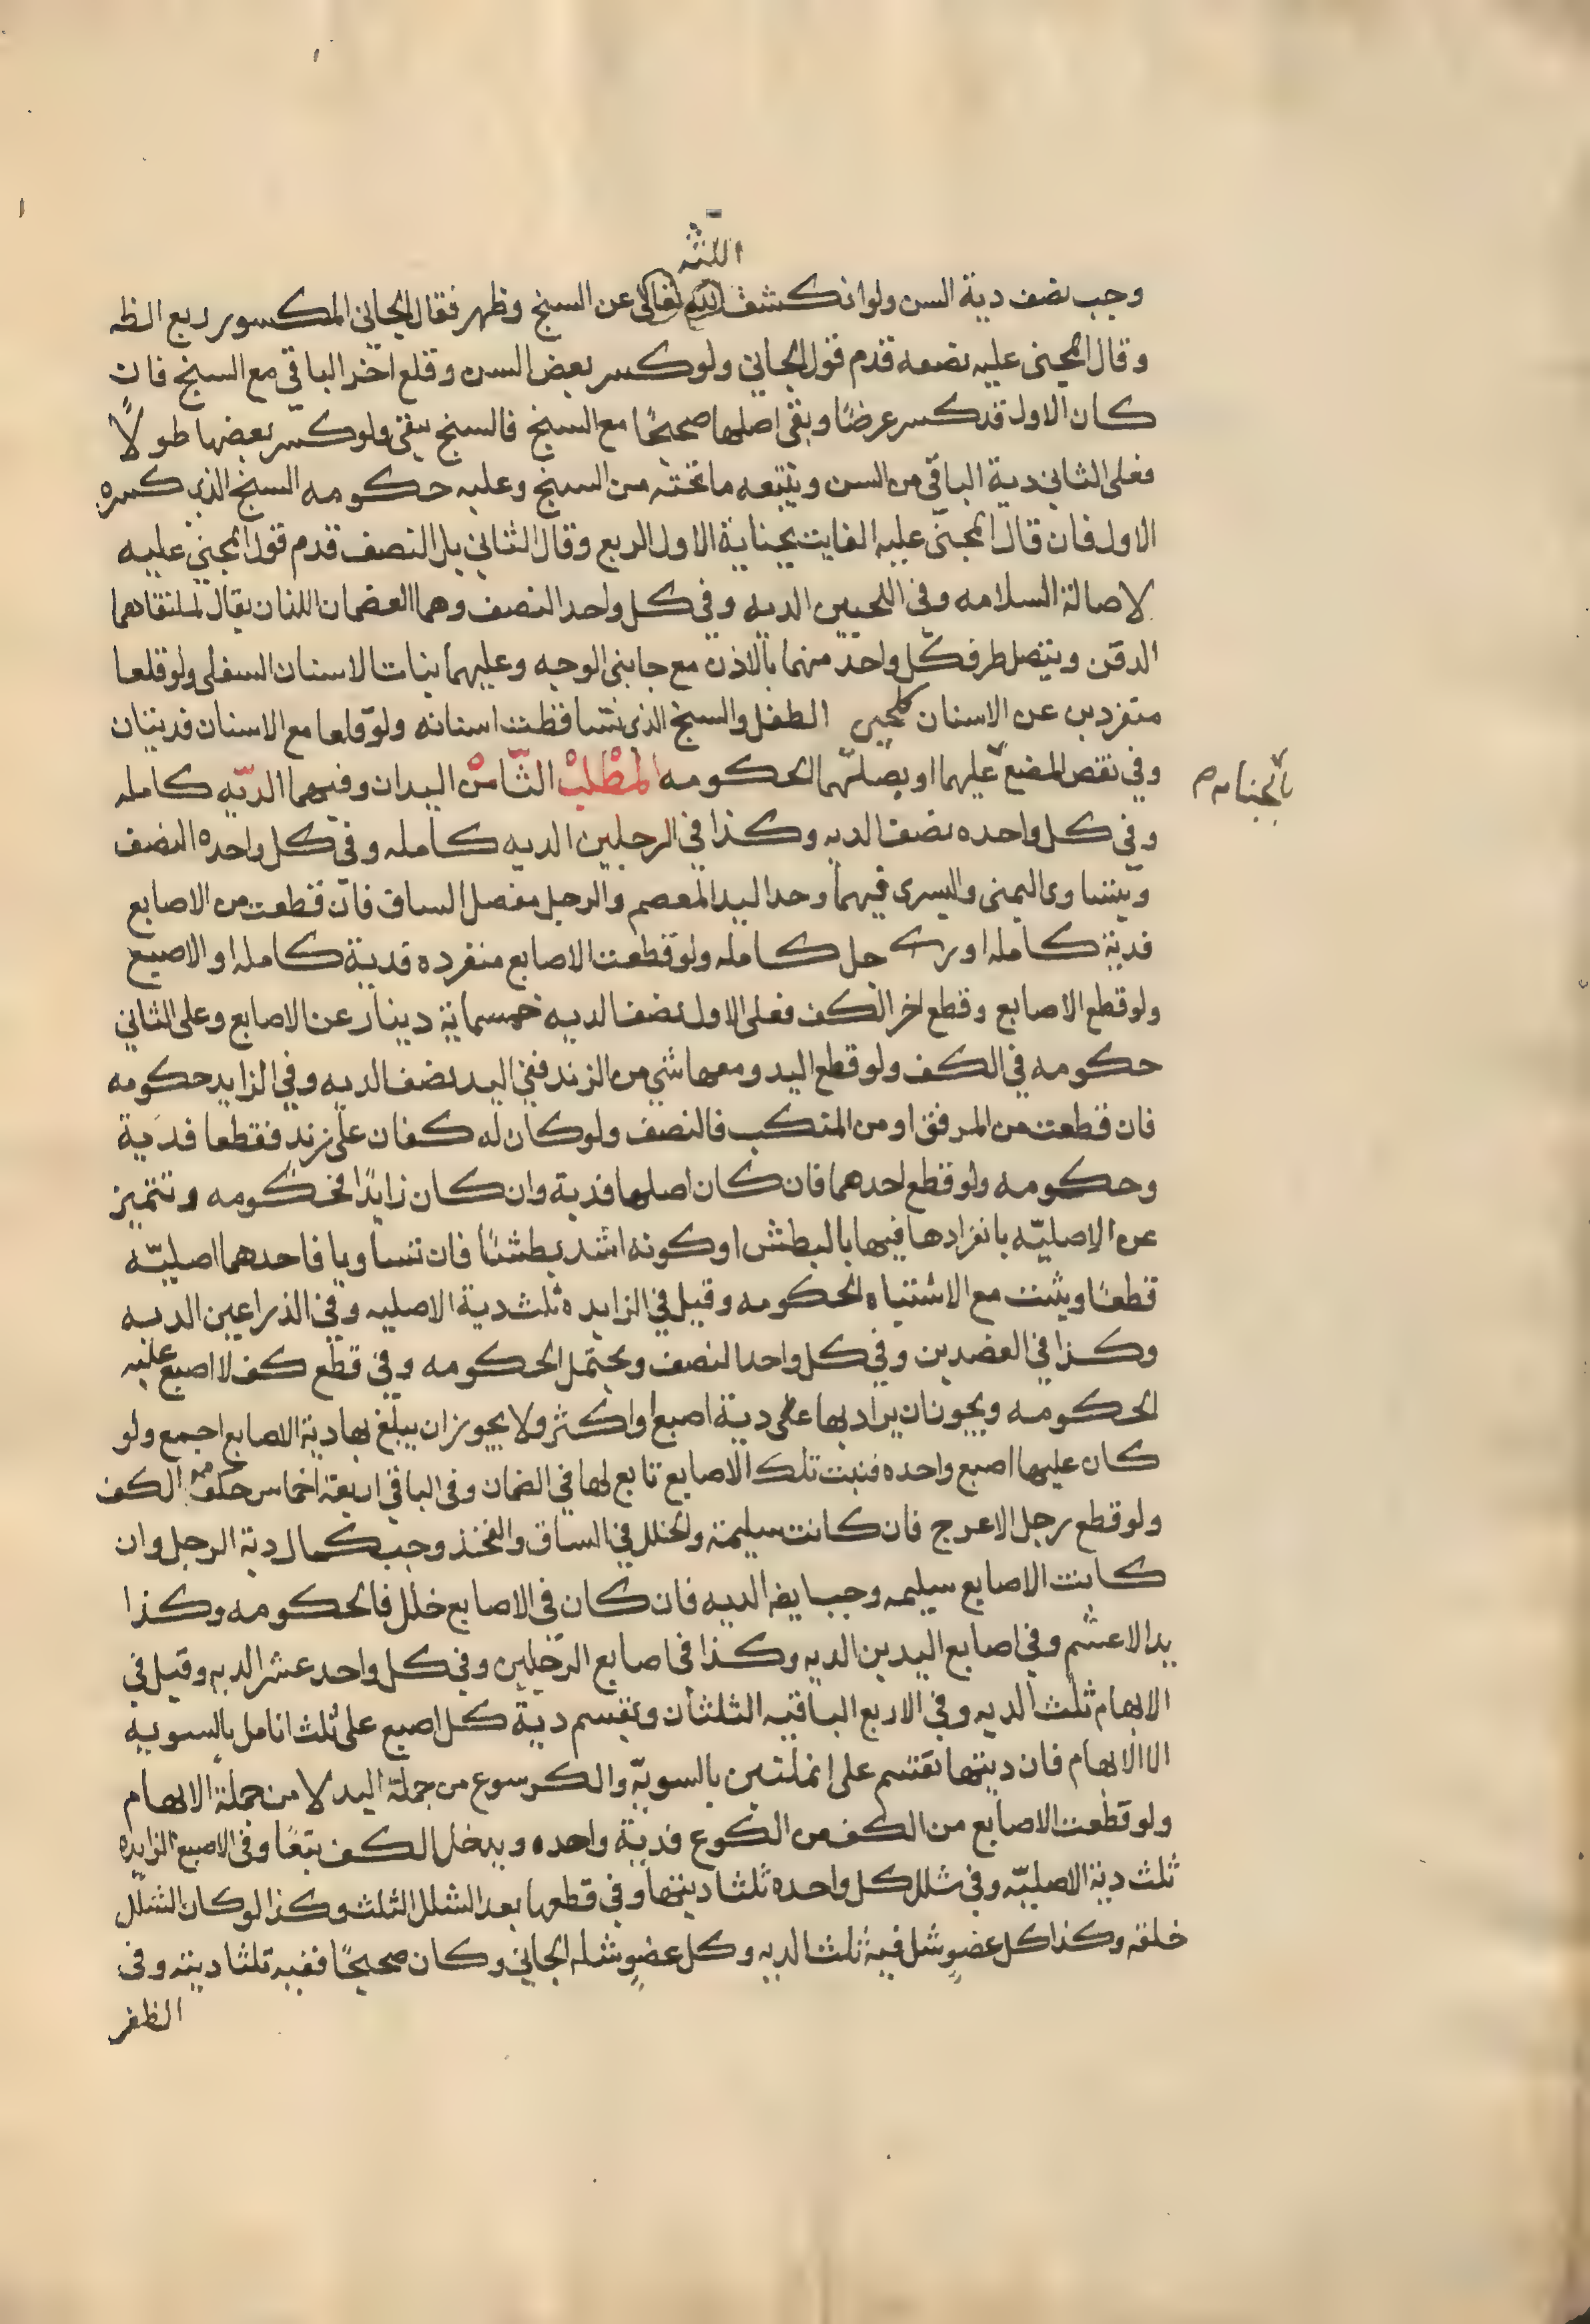 اللثه
وجب نصف دية السن ولو انكشف الله تعالى عن السنخ وظهر فقال الجاني المكسور ربع الظه
وقال المجنى عليه نصفه قدم قول الجاني ولو كسر بعض السن وقلع اخر الباقي مع السنخ فان
كان الاول قد كسر عرضًا وبقى اصلها صحيحًا مع السنخ فالسنخ يبقى ولو كسر بعضها طولًا
فعلى الثاني دية الباقي من السن ويتبعه ما تحته من السنخ وعليه حكومه السنخ الذي كسره
الاول فان قال المجنى عليه الفايت بجناية الاول الربع وقال الثاني بل النصف قدم قول المجني عليه
لاصالة السلامه وفي اللحيين الديه وفي كل واحد النصف وهما العضمان اللذان يقال لملتقاهما
الدقن ويتصل طرف كل واحد منهما بالاذن مع جابنى الوجه وعليهما نبات الاسنان السفلى ولو قلعا
منفردين عن الاسنان كلحيى الطفل والسنخ الذى تساقطت اسنانه ولو قلعا مع الاسنان فديتان
وفي نقص المضغ عليهما او بصلتهما الحكومه المطلب الثامن اليدان وفيهما الديه كامله
بالجنايه م
وفي كل واحده نصف الديه وكذا في الرجلين الديه كامله وفي كل واحده النصف
ويتساوى اليمنى واليسرى فيهما وحد اليد المعصم والرجل مفصل الساق فان قطعت من الاصابع
فدية كامله او رجل كامله ولو قطعت الاصابع منفرده فدية كامله او الاصبع
ولو قطع الاصابع وقطع اخر الكف فعلى الاول نصف الديه خمسماية دينار عن الاصابع وعلى الثاني
حكومه في الكف ولو قطع اليد ومعها شي من الزند ففي اليد نصف الديه وفي الزايد حكومه
فان قطعت من المرفق او من المنكب فالنصف ولو كان له كفان على زند فقطعا فدية
وحكومه ولو قطع احدهما فان كان اصلها فدية وان كان زايدًا فحكومه وتتميز
عن الاصليّه بانفرادها فيها بالبطش او كونه اشد بطشًا فان تساويا فاحدهما اصليّه
قطعًا ويثبت مع الاشتباه الحكومه وقيل في الزايده ثلث دية الاصليه وفي الذراعين الديه
وكذا في العضدين وفي كل واحد النصف ويحتمل الحكومه وفي قطع كف لا اصبع عليه
الحكومه ويجوز ان يراد بها على دية اصبع او اكثر ولا يجوز ان يبلغ بها دية الاصابع اجمع ولو
كان عليها اصبع واحده فنبت تلك الاصابع تابع لها في الضمان وفي الباقي اربعة اخماس حكومه الكف
ولو قطع رجل الاعرج فان كانت سليمة والخلل في الساق والفخذ وجب كمال دية الرجل وان
كانت الاصابع سليمه وجب ايضا الديه فان كان في الاصابع خلل فالحكومه وكذا
يد الاعشم وفي اصابع اليدين الديه وكذا في اصابع الرجلين وفي كل واحد عشر الديه وقيل في
الابهام ثلث الديه وفي الاربع الباقيه الثلثان وتقسم دية كل اصبع على ثلث انامل بالسويه
الا الابهام فان ديتها تقتسم على انملتين بالسويّه والكرسوع من جملة اليد لا من جملة الابهام
ولو قطعت الاصابع من الكف من الكوع فدية واحده ويدخل الكف تبعًا وفي الاصبع الزايده
ثلث دية الاصليّه وفي شلل كل واحده ثلثا ديتها وفي قطعها بعد الشلل الثلث وكذا لو كان الشلل
خلقه وكذا كل عضوٍ شل فيه ثلث الديه وكل عضوٍ شله الجاني وكان صحيحًا ففيه ثلثا ديته وفي
الظفر